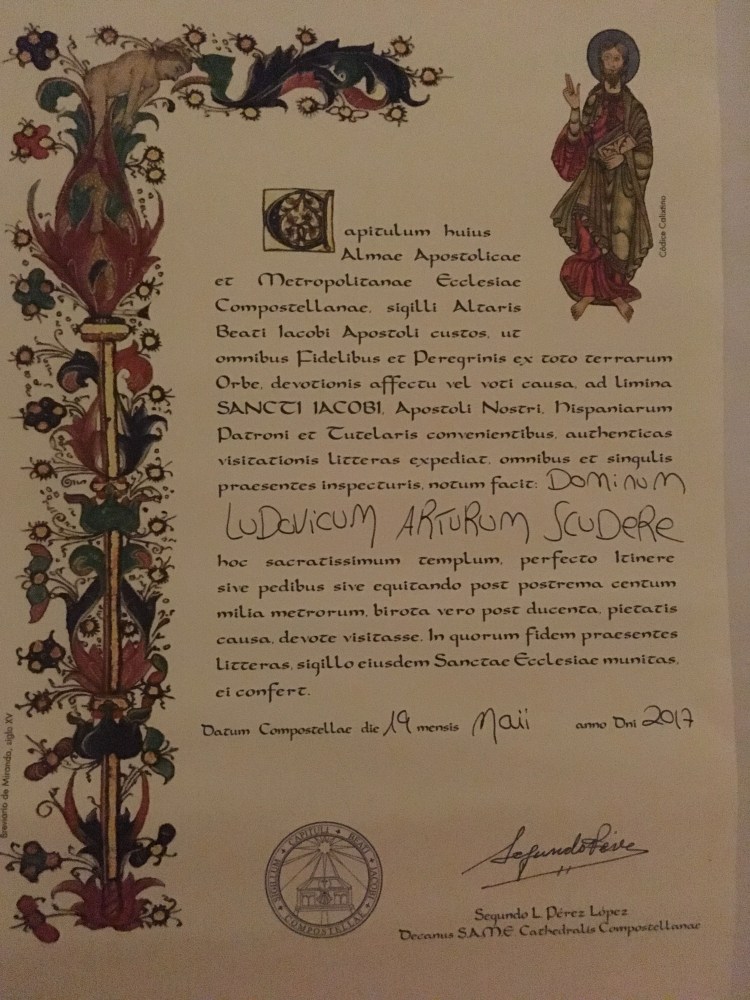 Capitulum huius
Almae Apostolicae
et Metropolitanae Ecclesiae
Compostellanae, sigilli Altaris
Beati Iacobi Apostoli custos, ut
omnibus Fidelibus et Peregrinis ex toto terrarum
Orbe, devotionis affectu vel voti causa, ad limina
SANCTI IACOBI, Apostoli Nostri, Hispaniarum
Patroni et Tutelaris convenientibus, authenticas
visitationis litteras expediat, omnibus et singulis
praesentes inspecturis, notum facit: Dominum
Ludovicum Arturum Scudere
hoc sacratissimum templum, perfecto Itinere
sive pedibus sive equitando post postrema centum
milia metrorum, birota vero post ducenta, pietatis
causa, devote visitasse. In quorum fidem praesentes
litteras, sigillo eiusdem Sanctae Ecclesiae munitas,
ei confert.
Datum Compostellae die 19 mensis Maii anno Dni 2017
SIGILLUM CAPITULI BEATI JACOBI COMPOSTELLAE
Segundo Pérez
Segundo L. Pérez López
Decanus S.A.M.E. Cathedralis Compostellanae
Códice Calixtino
Breviario de Miranda, siglo XV